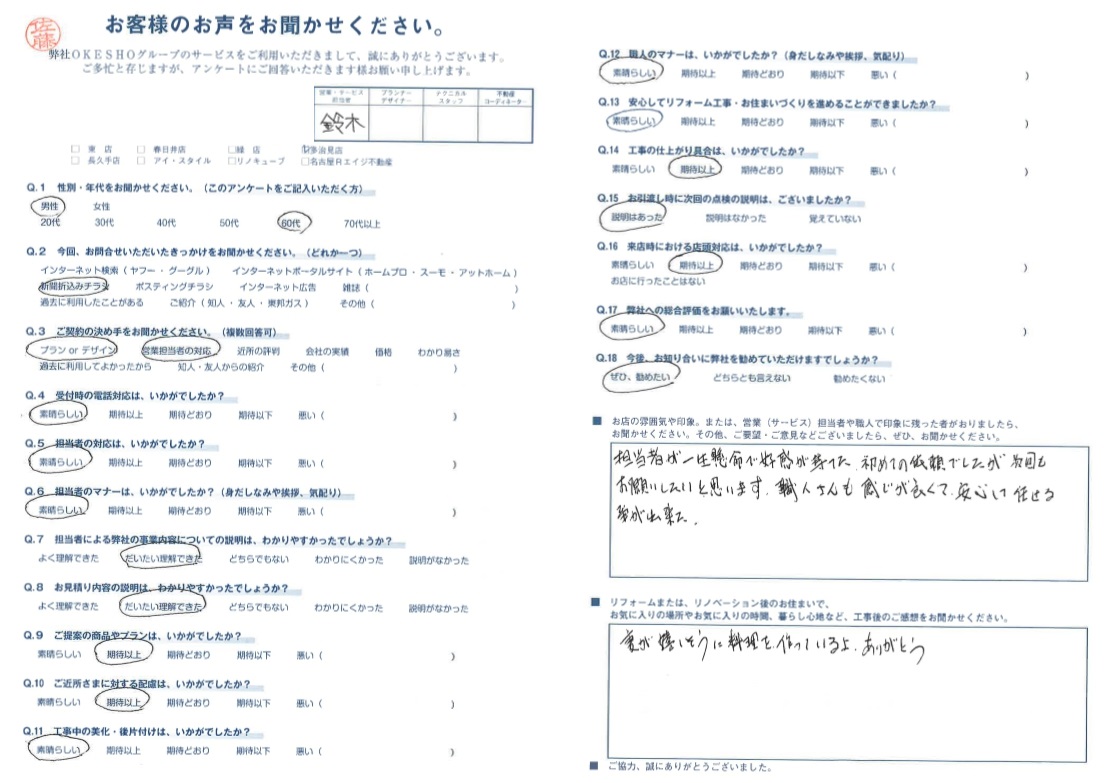 佐藤
お客様のお声をお聞かせください。
弊社OKESHOグループのサービスをご利用いただきまして、誠にありがとうございます。
ご多忙と存じますが、アンケートにご回答いただきます様お願い申し上げます。
営業・サービス担当者 プランナーデザイナー テクニカルスタッフ 不動産コーディネーター
鈴木
□ 東 店 □ 春日井店 □緑 店 ☑多治見店
□ 長久手店 □ アイ・スタイル □リノキューブ □名古屋Rエイジ不動産
Q.1 性別・年代をお聞かせください。(このアンケートをご記入いただく方)
男性 女性
20代 30代 40代 50代 60代 70代以上
Q.2 今回、お問合せいただいたきっかけをお聞かせください。(どれか一つ)
インターネット検索(ヤフー・グーグル) インターネットポータルサイト(ホームプロ・スーモ・アットホーム)
新聞折込みチラシ ポスティングチラシ インターネット広告 雑誌( )
過去に利用したことがある ご紹介(知人・友人・東邦ガス) その他( )
Q.3 ご契約の決め手をお聞かせください。(複数回答可)
プラン or デザイン 営業担当者の対応 近所の評判 会社の実績 価格 わかり易さ
過去に利用してよかったから 知人・友人からの紹介 その他( )
Q.4 受付時の電話対応は、いかがでしたか?
素晴らしい 期待以上 期待どおり 期待以下 悪い( )
Q.5 担当者の対応は、いかがでしたか?
素晴らしい 期待以上 期待どおり 期待以下 悪い( )
Q.6 担当者のマナーは、いかがでしたか?(身だしなみや挨拶、気配り)
素晴らしい 期待以上 期待どおり 期待以下 悪い( )
Q.7 担当者による弊社の事業内容についての説明は、わかりやすかったでしょうか?
よく理解できた だいたい理解できた どちらでもない わかりにくかった 説明がなかった
Q.8 お見積り内容の説明は、わかりやすかったでしょうか?
よく理解できた だいたい理解できた どちらでもない わかりにくかった 説明がなかった
Q.9 ご提案の商品やプランは、いかがでしたか?
素晴らしい 期待以上 期待どおり 期待以下 悪い( )
Q.10 ご近所さまに対する配慮は、いかがでしたか?
素晴らしい 期待以上 期待どおり 期待以下 悪い( )
Q.11 工事中の美化・後片付けは、いかがでしたか?
素晴らしい 期待以上 期待どおり 期待以下 悪い( )
Q.12 職人のマナーは、いかがでしたか?(身だしなみや挨拶、気配り)
素晴らしい 期待以上 期待どおり 期待以下 悪い( )
Q.13 安心してリフォーム工事・お住まいづくりを進めることができましたか?
素晴らしい 期待以上 期待どおり 期待以下 悪い( )
Q.14 工事の仕上がり具合は、いかがでしたか?
素晴らしい 期待以上 期待どおり 期待以下 悪い( )
Q.15 お引渡し時に次回の点検の説明は、ございましたか?
説明はあった 説明はなかった 覚えていない
Q.16 来店時における店頭対応は、いかがでしたか?
素晴らしい 期待以上 期待どおり 期待以下 悪い( )
お店に行ったことはない
Q.17 弊社への総合評価をお願いいたします。
素晴らしい 期待以上 期待どおり 期待以下 悪い( )
Q.18 今後、お知り合いに弊社を勧めていただけますでしょうか?
ぜひ、勧めたい どちらとも言えない 勧めたくない
■ お店の雰囲気や印象。または、営業(サービス)担当者や職人で印象に残った者がおりましたら、
お聞かせください。その他、ご要望・ご意見などございましたら、ぜひ、お聞かせください。
担当者が一生懸命で好感が持てた. 初めての依頼でしたが 次回も
お願いしたいと思います. 職人さんも 感じが良くて. 安心して 任せる
事が出来た.
■ リフォームまたは、リノベーション後のお住まいで、
お気に入りの場所やお気に入りの時間、暮らし心地など、工事後のご感想をお聞かせください。
妻が 嬉しそうに 料理を 作っているよ. ありがとう
■ ご協力、誠にありがとうございました。